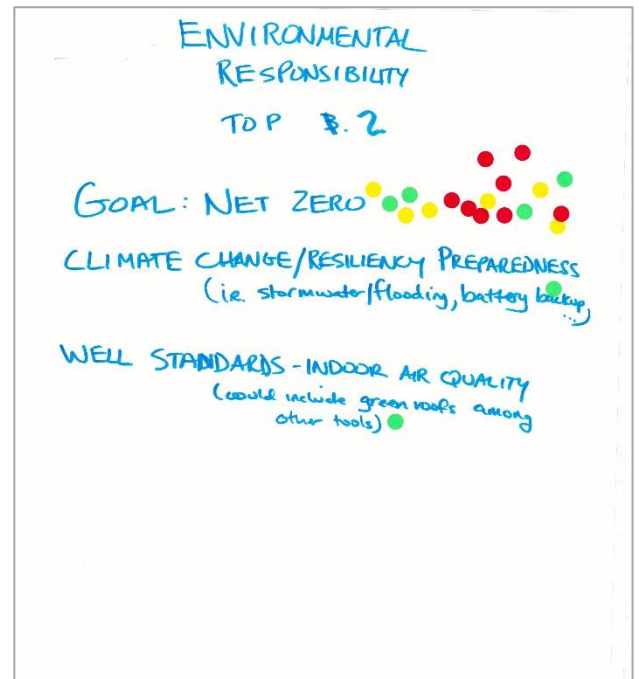 ENVIRONMENTAL
RESPONSIBILITY
TOP 2
GOAL: NET ZERO
CLIMATE CHANGE/RESILIENCY PREPAREDNESS
(ie. stormwater/flooding, battery backup,
...)
WELL STANDARDS - INDOOR AIR QUALITY
(could include green roofs among
other tools)